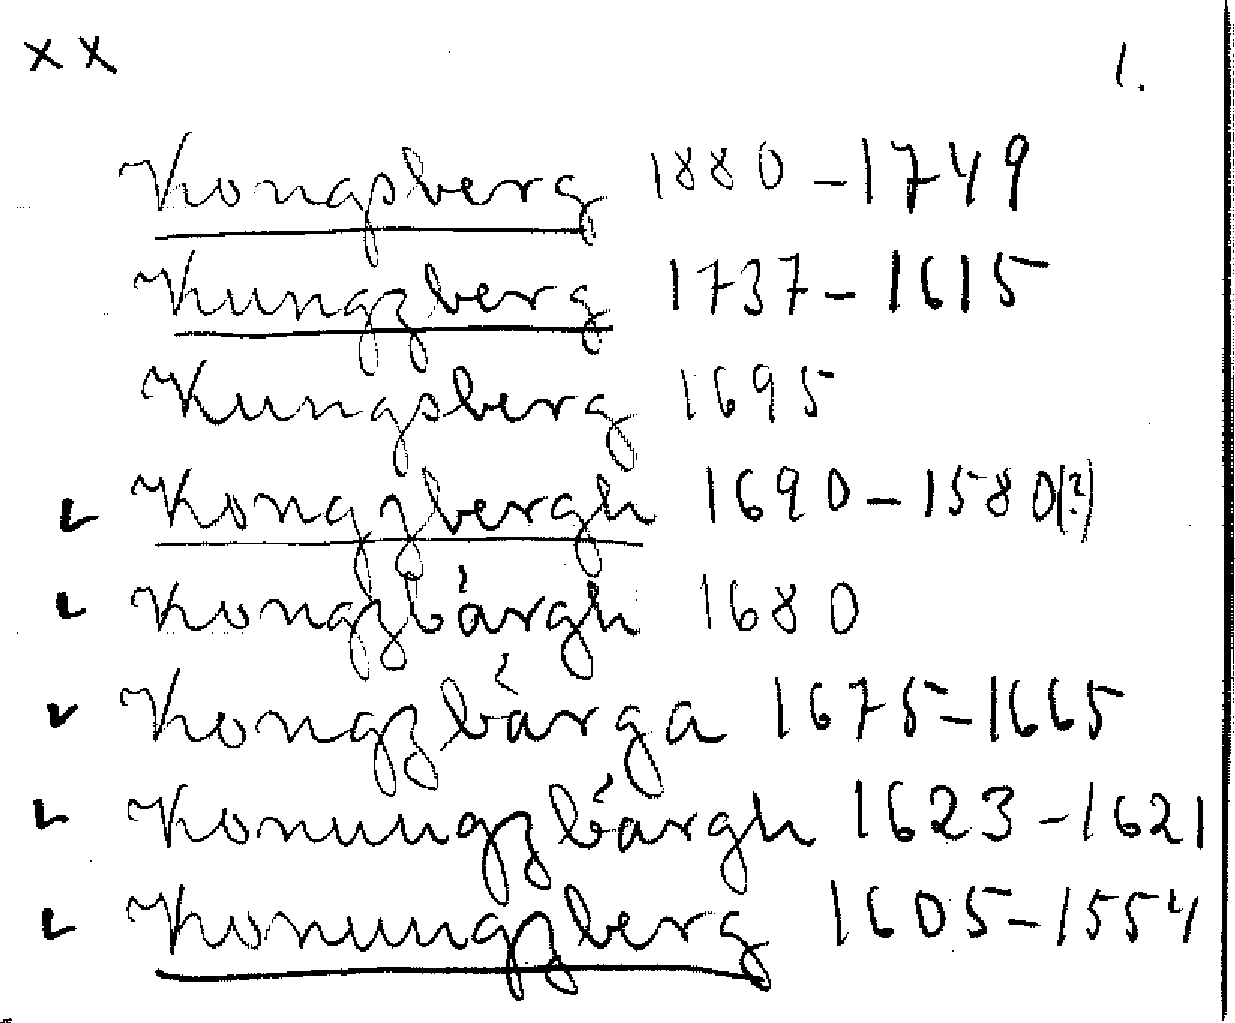 x x 1.
Kongsberg 1880-1749
Kungzberg 1737-1615
Kungsberg 1695
Kongzbergh 1690-1580(?)
Kongzbärgh 1680
Kongzbärga 1675-1665
Konungzbärgh 1623-1621
Konungzberg 1605-1554